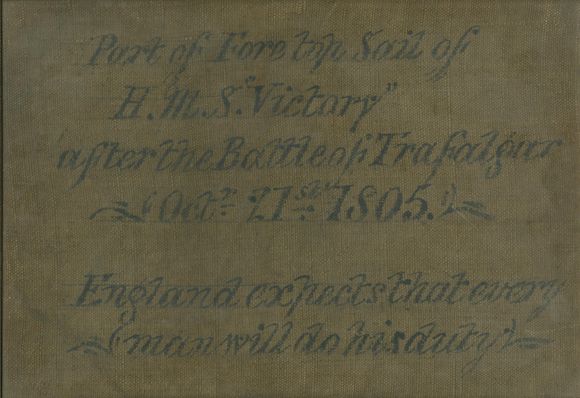 Part of Fore top Sail of
H.M.S. "Victory"
after the Battle of Trafalgar
(Oct.r 21st 1805.)
England expects that every
(man will do his duty)